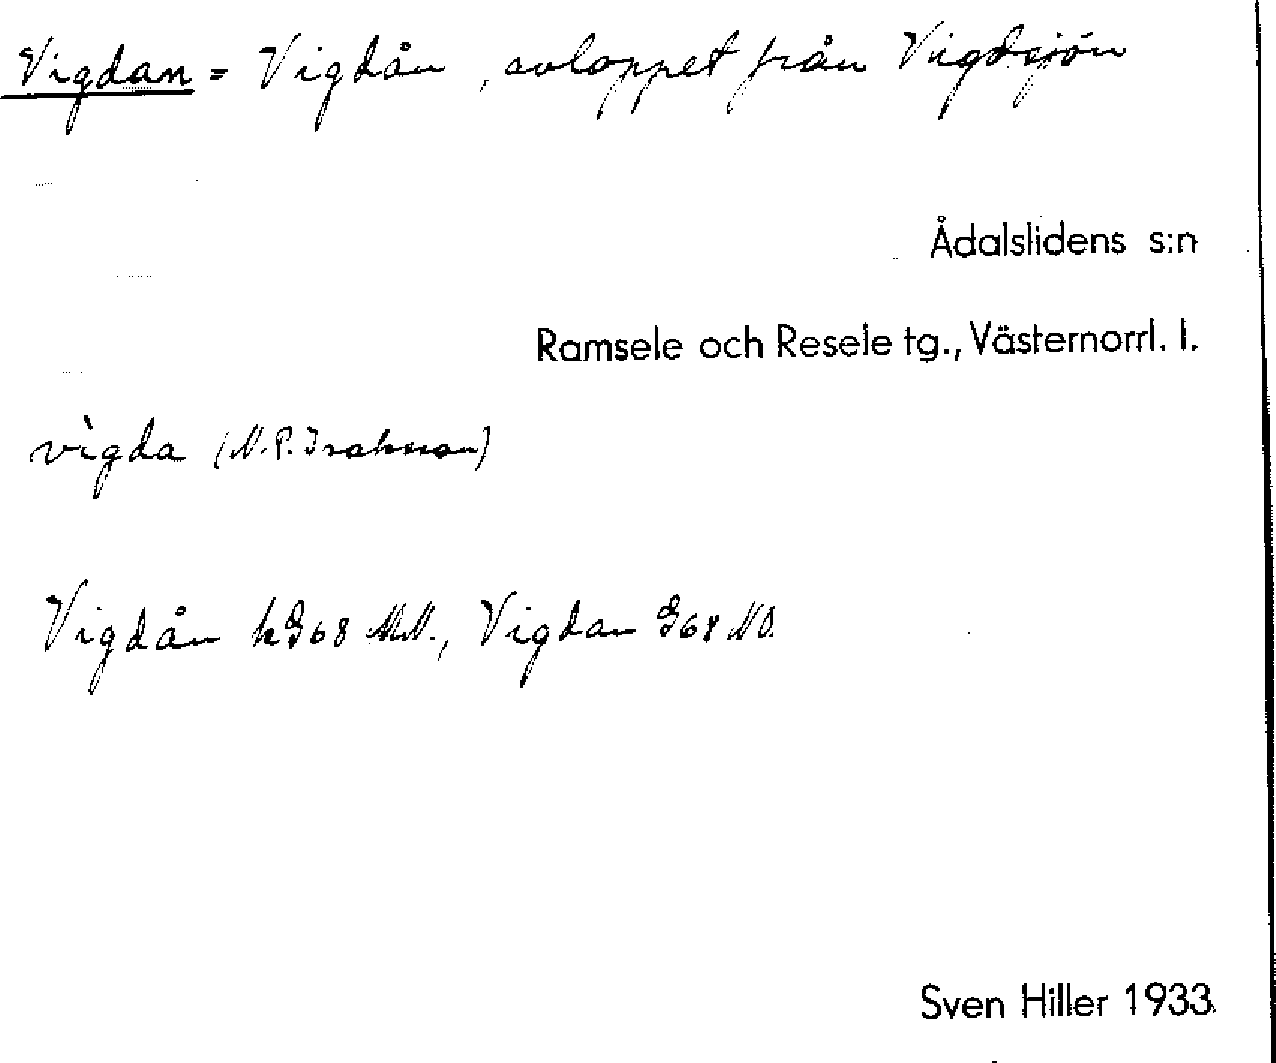 Vigdan = Vigdån, avloppet från Vigdsjön
Ådalslidens s:n
Ramsele och Resele tg., Västernorrl. l.
vìgda (N.P. Isaksson)
Vigdån hG68 NV., Vigdan G68 NO.
Sven Hiller 1933